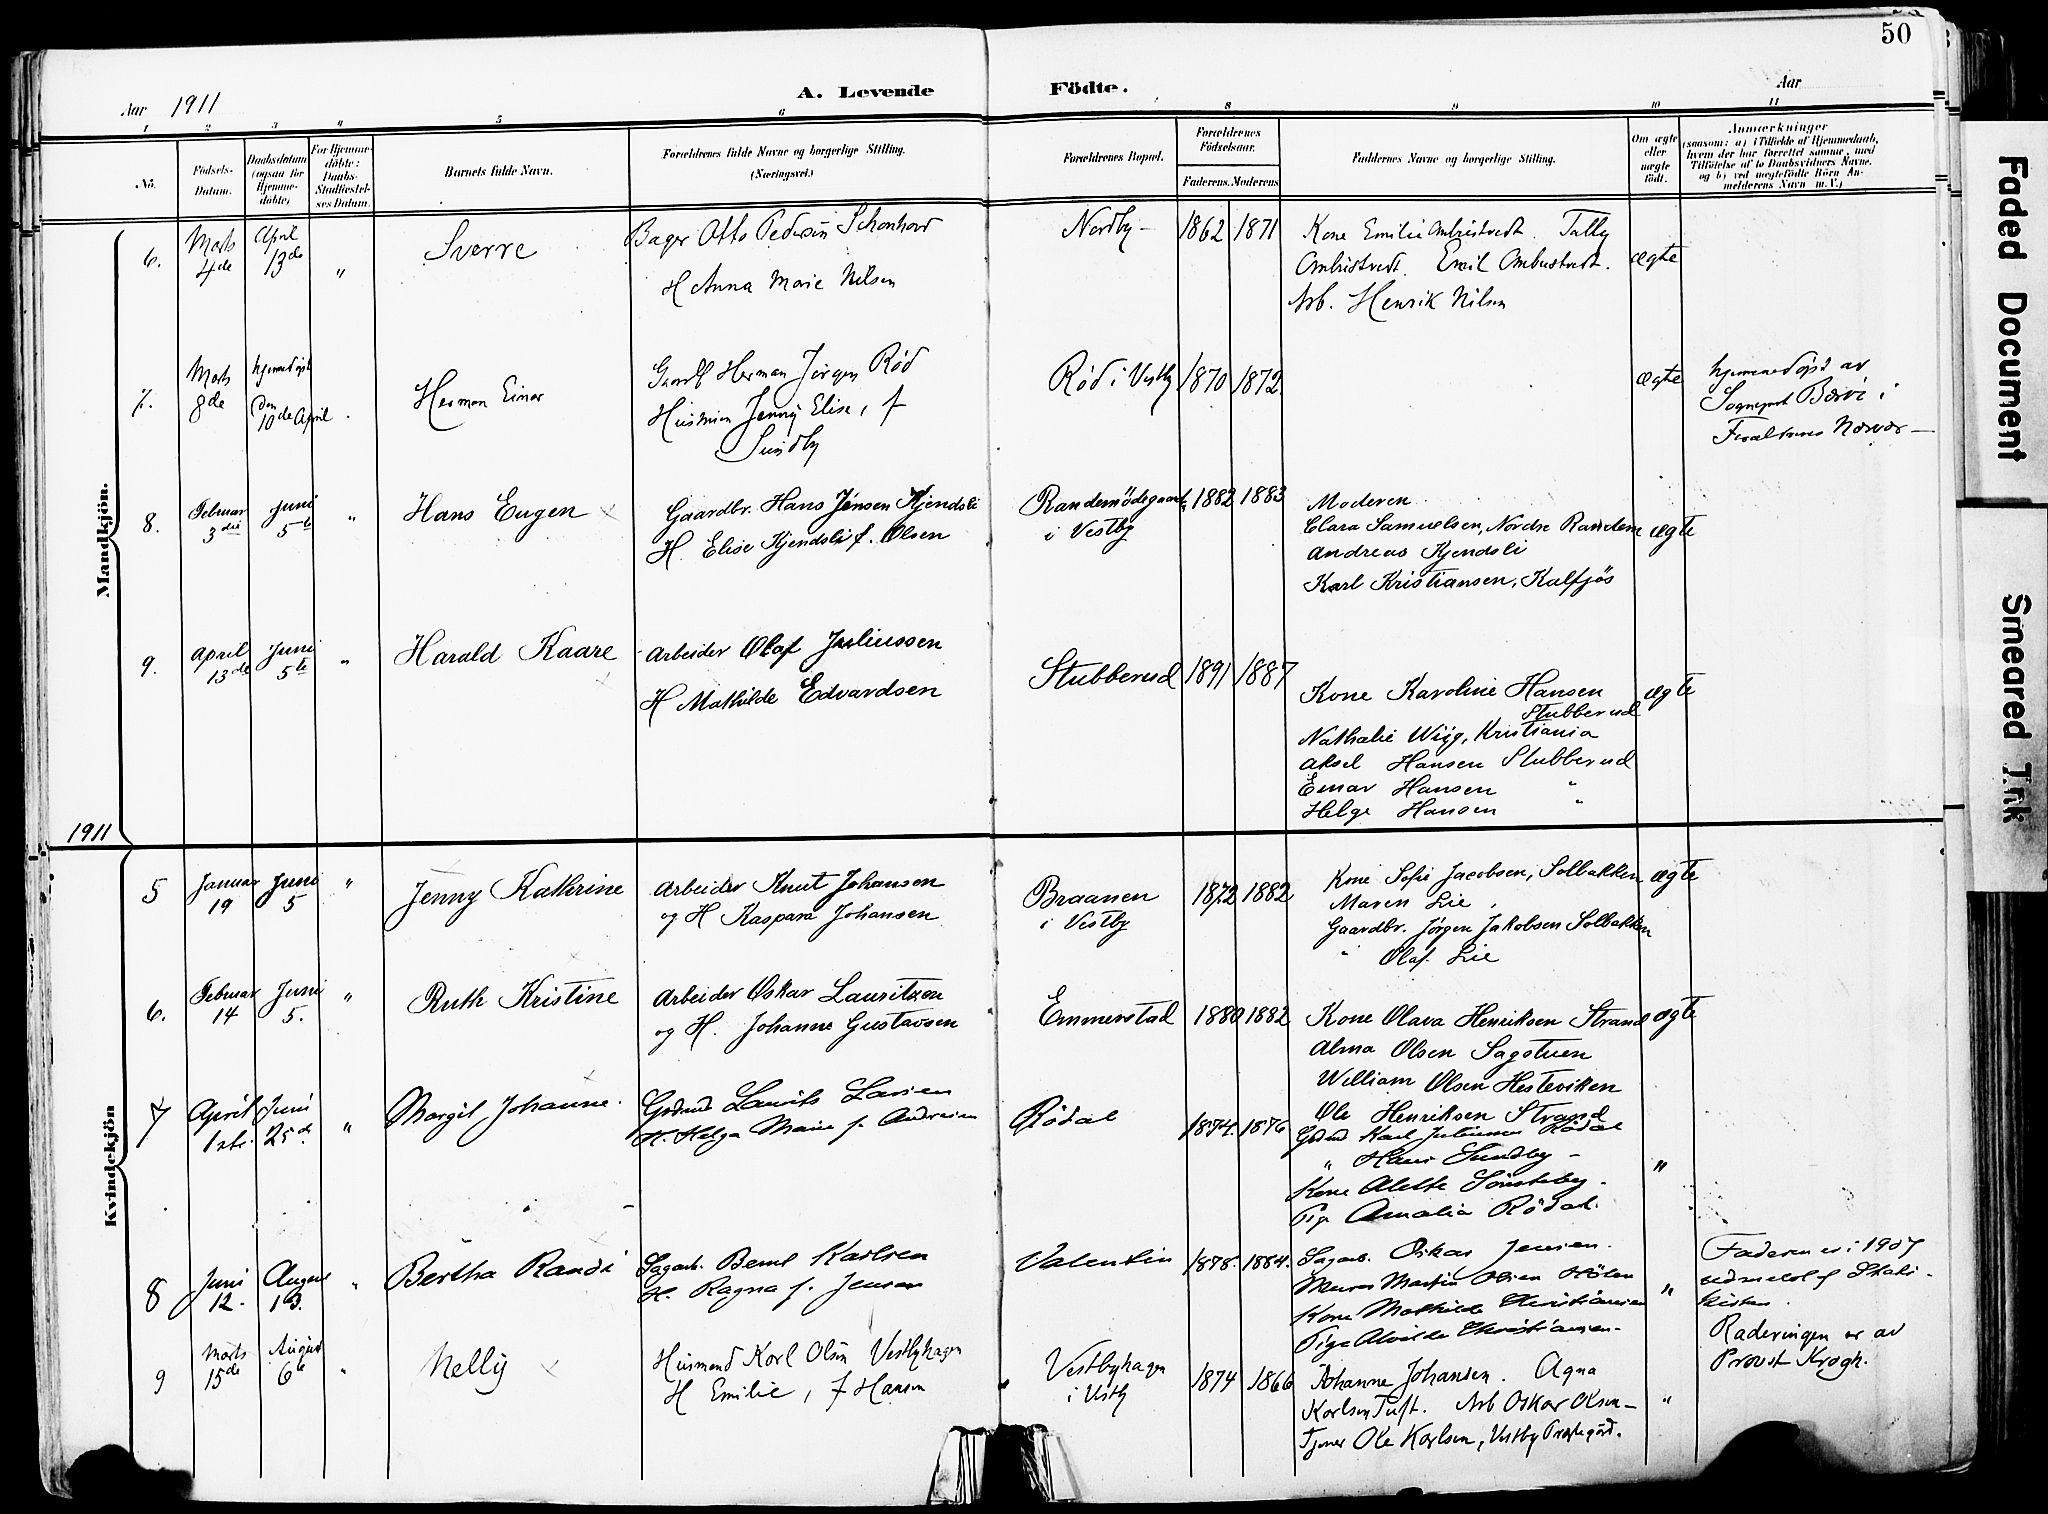 50
Aar 1911
A. Levende Födte.
Aar
1 2 3 4 5 6 8 9 10 11
No.
Födsels-Datum.
Daabsdatum (ogsaa for Hjemme-döbte)
For Hjemme-döbte: Daabs-Stadfæstel-ses Datum.
Barnets fulde Navn.
Forældrenes fulde Navne og borgerlige Stilling. (Næringsvei.)
Forældrenes Bopæl.
Forældrenes Födselsaar.
Faderens. Moderens
Faddernes Navne og borgerlige Stilling.
Om ægte eller uægte födt.
Anmærkninger
(saasom: a) i Tilfælde af Hjemmedaab,
hvem der har forrettet samme, med
Tilföielse af to Daabsvidners Navne.
og b) ved uægtefödte Börn An-
melderens Navn m. V.)
Mandkjön.
6. Marts 4de April 13de " Sverre
Bager Otto Pedersen
H Anna Marie Nilsen
Nordby - 1862 1871
Kone Emilie
Emil
Arb. Henrik Nilsen
ægte
7. Marts 8de hjemmedöpt den 10de April
Herman Einar
Gaardb Herman Jørgen Rød
Hustru Jenny Elise, f
Sundby
Rød i Vestby 1870 1872
ægte
hjemmedöpt av
Sogneprest
8. Februar 3die Juni 5te " Hans Eugen
Gaardbr. Hans Jensen Kjendsli
H. Elise Kjendsli f. Olsen
Randemödegaard
i Vestby
1882 1883
Moderen
Clara Samuelsen, Nordre Randem
Andreas Kjendsli
Karl Kristiansen, Kalfjös
ægte
9. April 13de Juni 5te " Harald Kaare
Arbeider Olaf Juliussen
H Mathilde Edvardsen
Stubberud 1891 1887
Kone Karoline Hansen
Stubberud
Nathalie Wiig, Kristiania
Aksel Hansen Stubberud
Einar Hansen "
Helge Hansen "
ægte
1911
Kvindekjön
5 Januar 19 Juni 5 " Jenny Kathrine
Arbeider Knut Johansen
og H Kaspara Johansen
Braanen
i Vestby
1872 1882
Kone Sofie Jacobsen, Solbakken
Maren Lie
Gaardbr. Jørgen Jakobsen Solbakken
" Olaf Lie
ægte
6. Februar 14 Juni 5. " Ruth Kristine
Arbeider Oskar Lauritzen
og H. Johanne Gustavsen
Emmerstad 1880 1882
Kone Olava Henriksen Strand
Alma Olsen Sagstuen
William Olsen Hesteviken
Ole Henriksen Strand
ægte
7 April 1ste. Juni 25de " Margit Johanne.
Lauritz Larsen
H. Helga Marie f. Andersen
Rødal 1874. 1876
Karl Juliussen Rödal
" Hans Sundby -
Kone Alette Sønsteby.
Pige Amalia Rödal.
"
8 Juni 12. August 13. " Bertha Randi
Sagarb. Bernt Karlsen
H. Ragna f. Jensen
Valentin 1878. 1884.
Sagarb. Oskar Jensen.
Murer Martin Olsen Hölen
Kone Mathilde Christiansen
Pige Alvilde Christiansen.
"
Faderen er i 1907
udmeldt af Stats-
kirken.
Raderingen er av
Provst Krogh.
9 Marts 15de August 6te " Nelly
Husmand Karl Olsen Vestbyhagen
H Emilie, f Hansen
Vestbyhagen
i Vestby
1874 1866
Johanne Johansen. Agna
Karlsen Tuft. Arb Oskar Olsen -
Tjener Ole Karlsen, Vestby Prestegård.
"
Faded Document
Smeared Ink